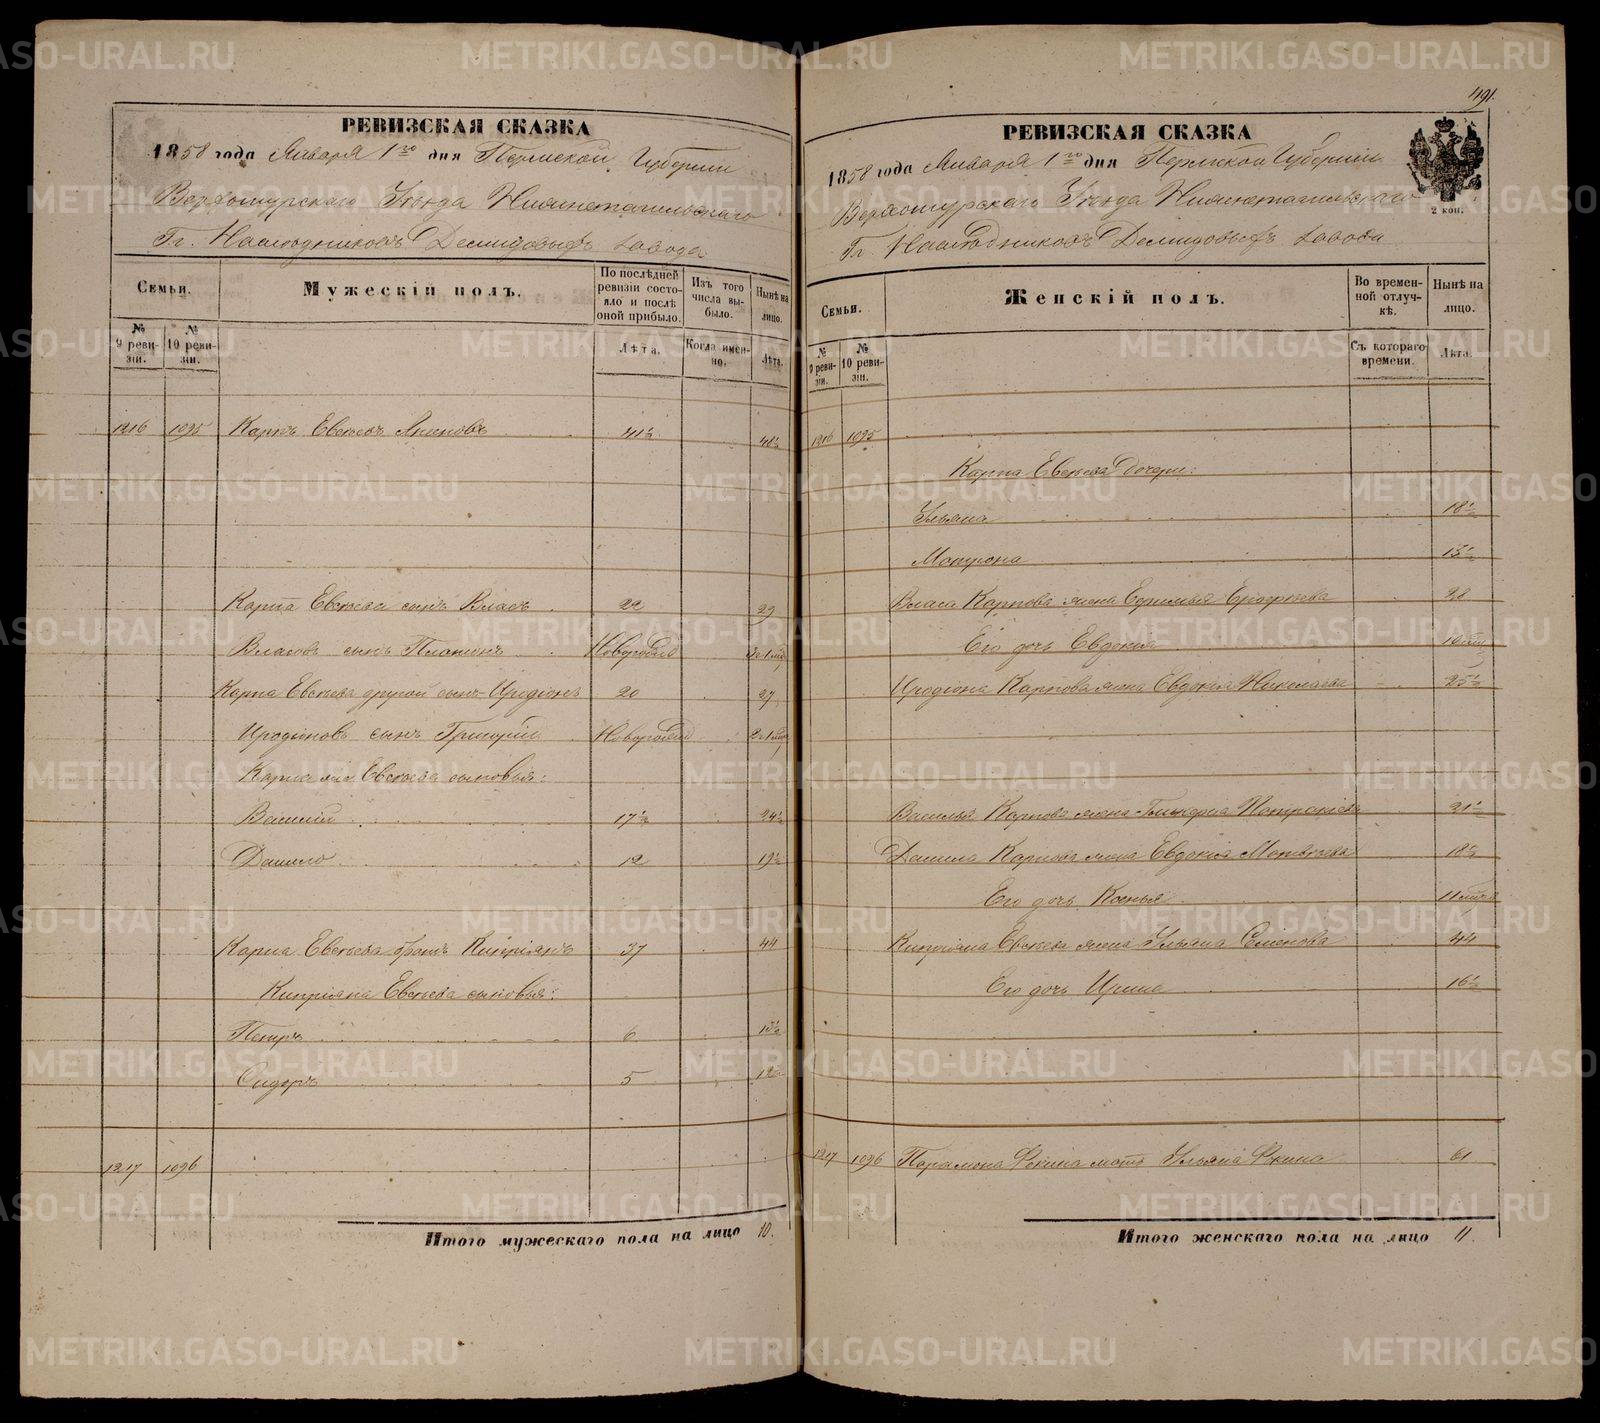 491.
РЕВИЗСКАЯ СКАЗКА
1858 года Января 1го дня Пермской Губернии
Верхотурского Уезда Нижнетагильского
Гг. Наследниковъ Демидовыхъ завода
Семьи.
Мужескій полъ.
По послѣдней ревизіи состояло и послѣ оной прибыло.
Изъ того числа выбыло.
Нынѣ на лицо.
№ 9 ревизіи.
№ 10 ревизіи.
Лѣта.
Когда именно.
Лѣта.
1216 1095 Карпъ Евсѣевъ 41½ 48½
Карпа Евсѣева сынъ Власъ 22 29
Власовъ сынъ Платонъ Новорожд
Карпа Евсѣева другой сынъ Иродіонъ 20 27
Иродіоновъ сынъ Григорій Новорожд
Карпа же Евсѣева сыновья:
Василій 17½ 24½
Данило 12 19½
Карпа Евсѣева братъ Кипріянъ 37 44
Кипріяна Евсѣева сыновья:
Петръ 6 13½
Сидоръ 5 12½
1217 1096
Итого мужескаго пола на лицо 10.
РЕВИЗСКАЯ СКАЗКА
1858 года Января 1го дня Пермской Губерніи
Верхотурского Уезда Нижнетагильского
Гг. Наследниковъ Демидовыхъ завода
2 коп.
Семьи.
Женскій полъ.
Во временной отлучкѣ.
Нынѣ на лицо.
№ 9 ревизіи.
№ 10 ревизіи.
Съ котораго времени.
Лѣта.
1216 1095
Карпа Евсѣева дочери:
Ульяна 18½
Матрона 13½
Власа Карпова жена 28
Его дочь Евдокія
Иродіона Карпова жена Евдокія Николаева 25½
Василья Карпова жена 21½
Данила Карпова жена Евдокія Матвѣева 18½
Его дочь Ксенья 11
Кипріяна Евсѣева жена Ульяна Семенова 44
Его дочь Ирина 16½
1217 1096 Парамона Фокина мать Ульяна 61
Итого женскаго пола на лицо 11.
METRIKI.GASO-URAL.RU